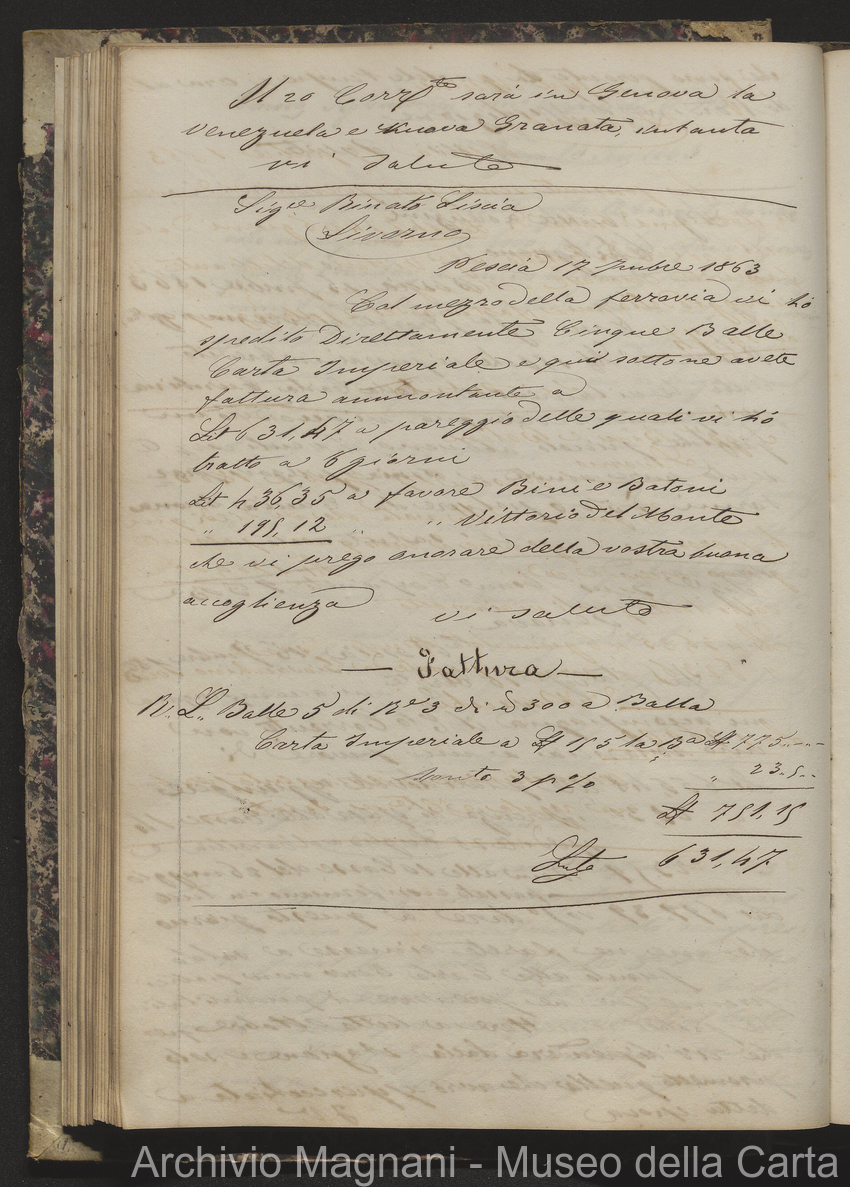 Il 20 Corr.te sarà in Genova la
Venezuela e Nuova Granata, intanto
vi saluto
Sig.re Binato Liscia
Livorno
Pescia 17 9mbre 1863
Col mezzo della ferrovia vi hò
spedito Direttamente Cinque Balle
Carta Imperiale e qui sotto ne avete
fattura ammontante a
Lit 631,47 a pareggio delle quali vi hò
tratto a 6 giorni
Lit 436,35 a favore Bini e Batoni
" 195,12 " " Vittorio Del Monte
che vi prego onorare della vostra buona
accoglienza
vi saluto
— Fattura —
Balle 5 di Re 3 di 300 a Balla
Carta Imperiale a 155 la Ba 775..
Sconto 3 p % " 23..5..
751,15
631,47
Archivio Magnani - Museo della Carta